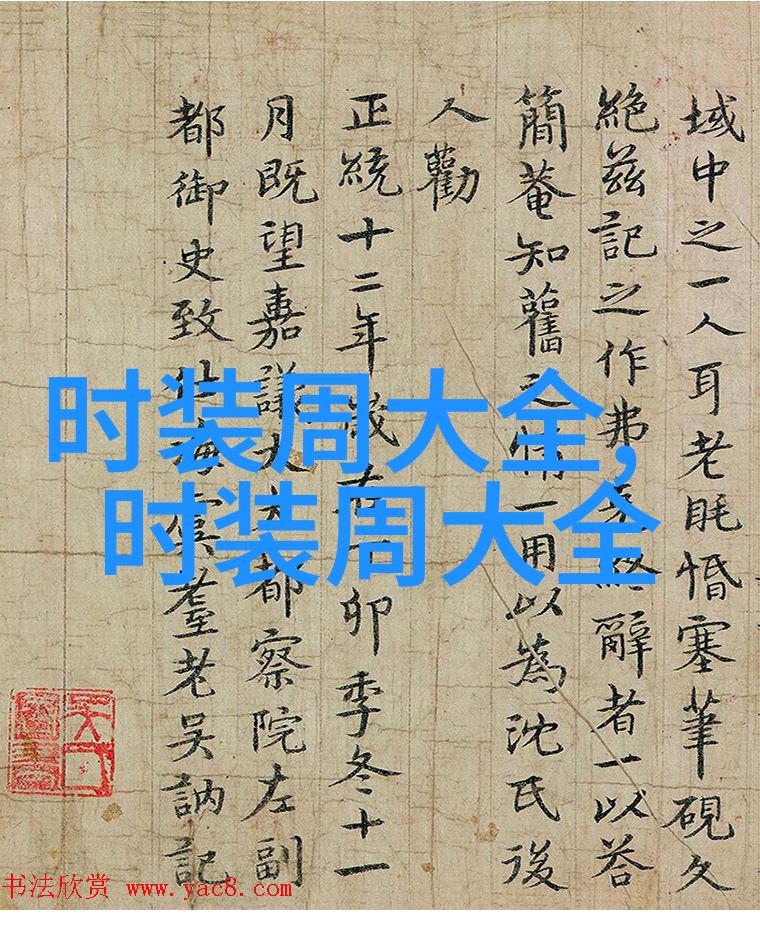 域中之一人耳老眊惛塞筆硯久
絶兹記之作弗終辭者一以荅
簡菴知舊之情一用以為沈氏後
人勸
正統十二年歲在丁卯季冬十一
月既望嘉議大夫都察院左副
都御史致仕海虞耄老吳訥記
时装周大全,
时装周大全
书法欣赏 www.yac8.com